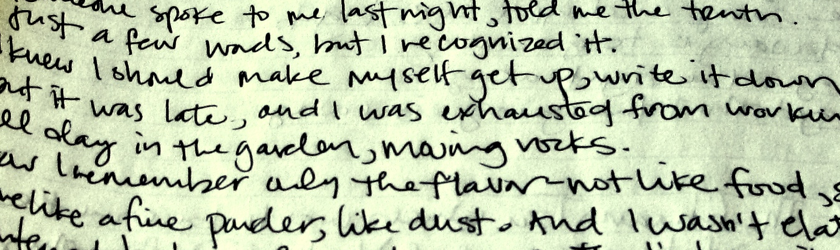 spoke to me last night, told me the truth.
Just a few words, but I recognized it.
knew I should make myself get up, write it down
but it was late, and I was exhausted from workin
all day in the garden, moving rocks.
I remember only the flavor – not like food, s
re like a fine powder, like dust. And I wasn't ela